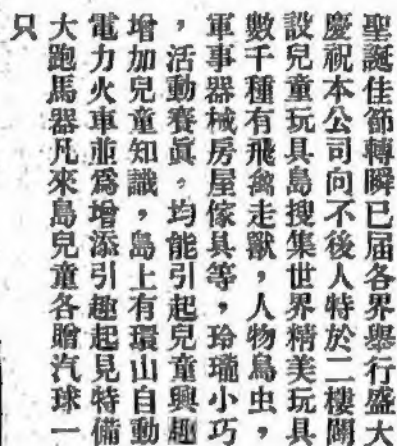 聖誕佳節轉瞬已届各界舉行盛大
慶祝本公司向不後人特於二樓闢
設兒童玩具島搜集世界精美玩具
數千種有飛禽走獸，人物鳥虫，
軍事器械房屋傢具等，玲瓏小巧
，活動賽眞。均能引起兒童興趣
增加兒童知識，島上有環山自動
電力火車並爲增添引趣起見特備
大跑馬器凡來島兒童各贈汽球一
只